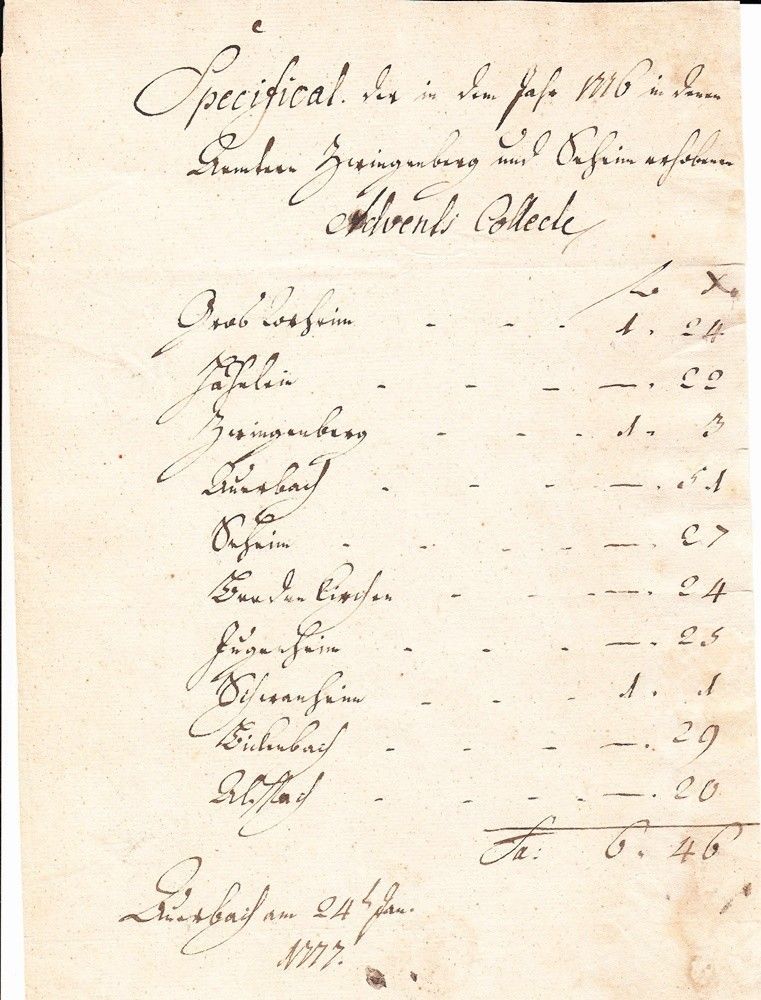 Specifical. der in dem Jahr 1776 in denen
Aemtern Zwingenberg und Seheim erhobenen
Advents Collecte
fl. x.
Gros Rorheim - - - 1. 24
Hähnlein - - - —. 22
Zwingenberg - - - 1. 3
Auerbach - - - —. 51
Seheim - - - - —. 27
Beedenkirchen - - - —. 24
Jugenheim - - - —. 25
Schwanheim - - - 1. 1
Bickenbach - - - —. 29
Alsbach - - - - —. 20
Sa: 6. 46
Auerbach am 24t Jan.
1777.